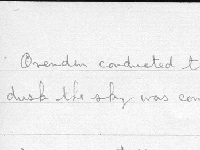 Ovenden conducted t
dusk the sky was com